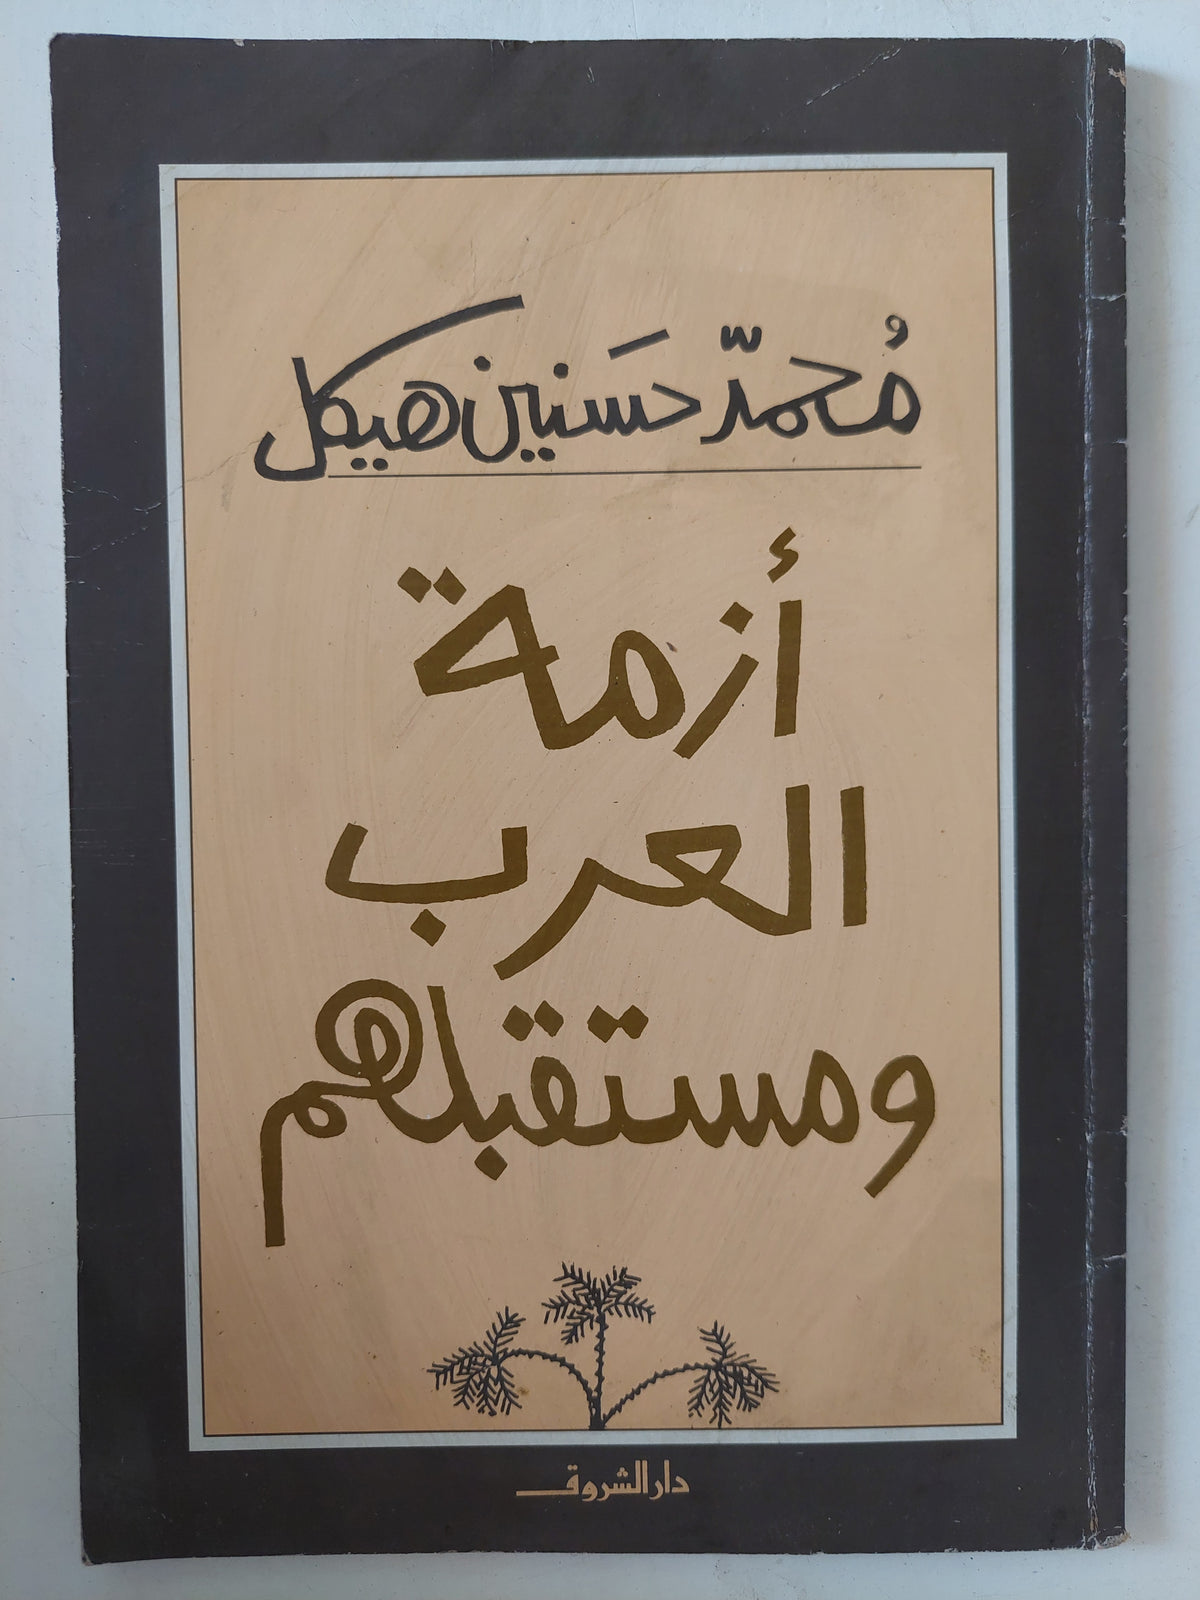 مُحمّد حسَنين هيكل
أزمة
العرب
ومستقبلهم
دار الشروق